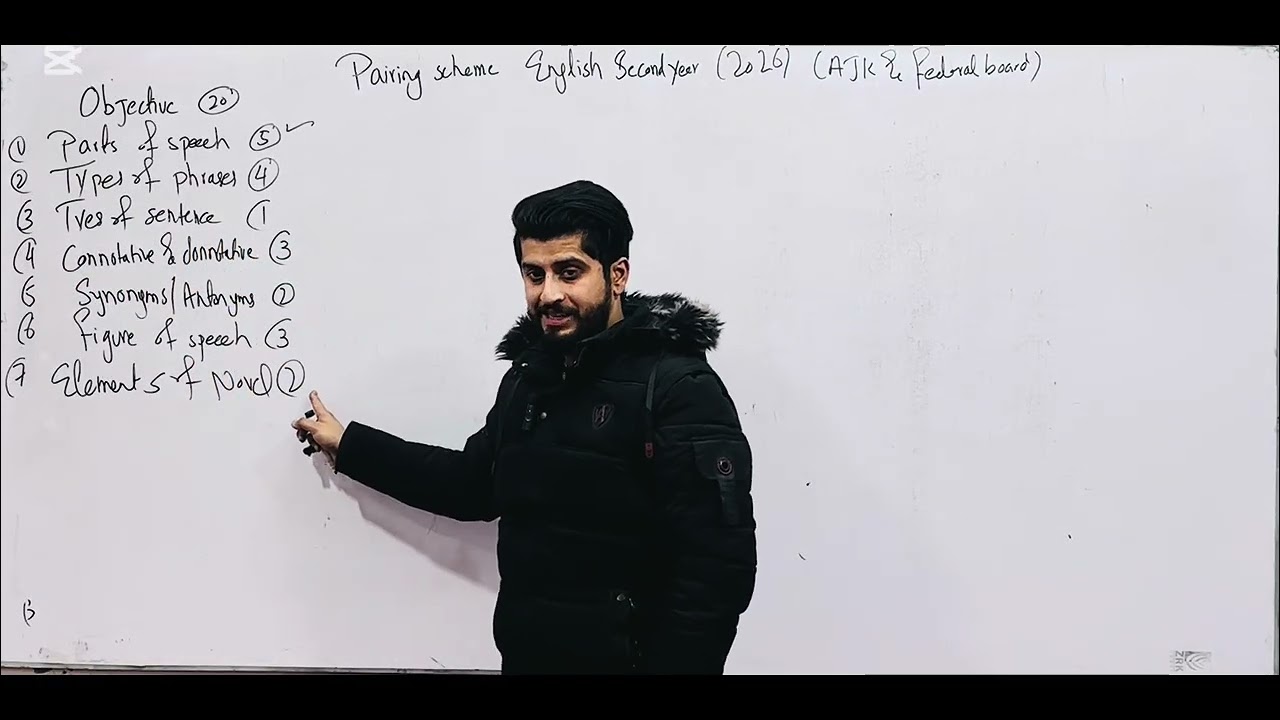 Pairing scheme English Second year (2026) (AJK & federal board)
Objective (20)
(1) Parts of speech (5) ✓
(2) Types of phrases (4)
(3 Tyes of sentence (1
(4 Connotative & donnotative (3
(5 Synonyms/Antonyms (2)
(6 figure of speech (3
(7 Elements of Novel (2)
ZRK